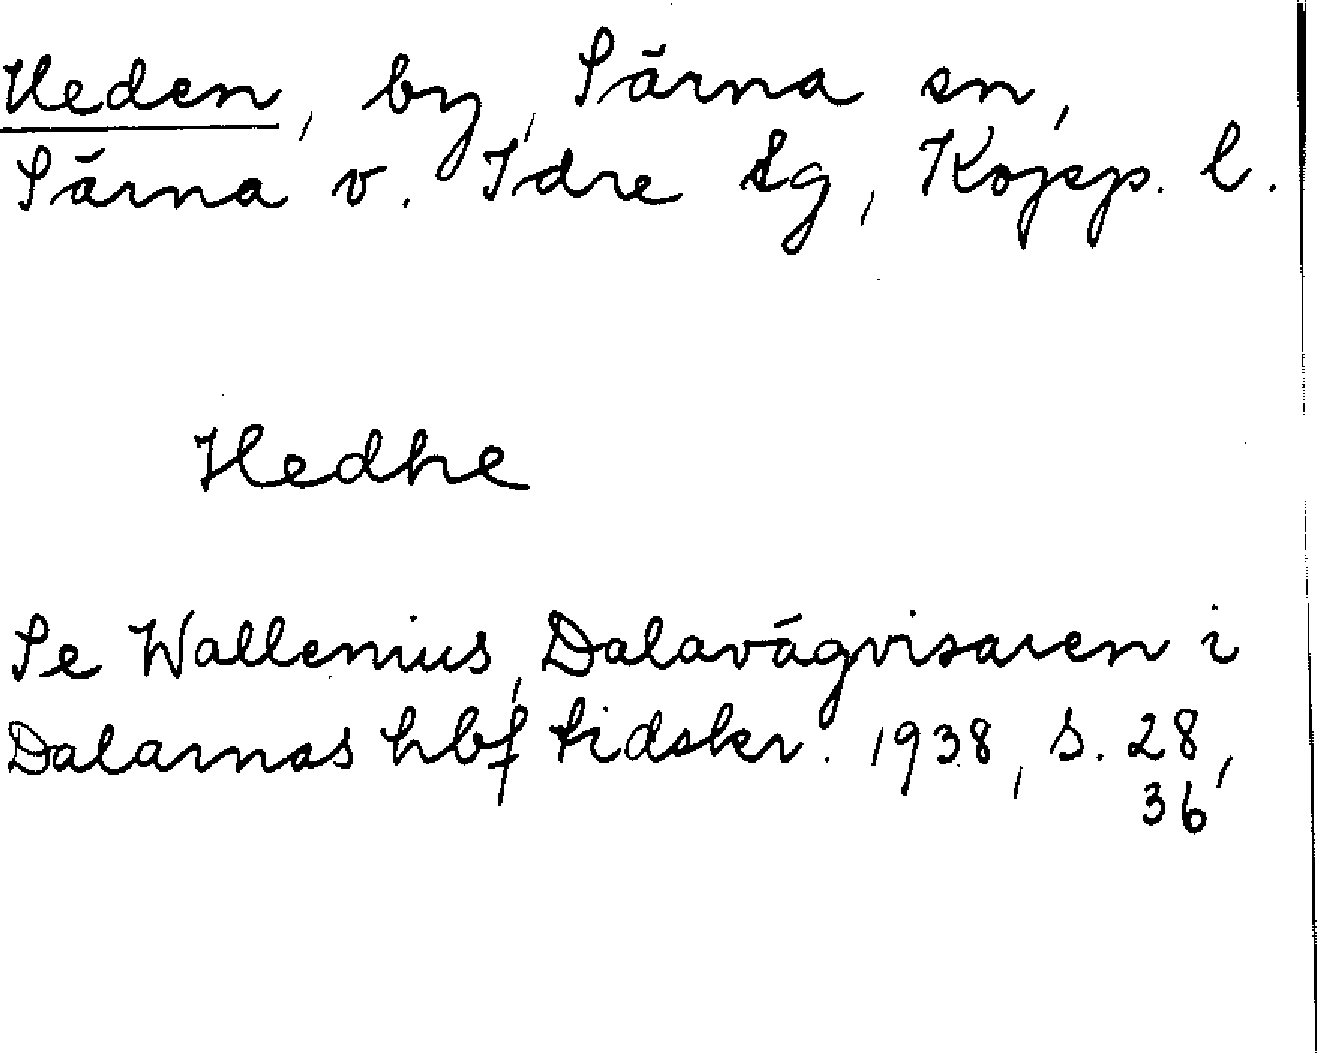 Heden, by, Särna sn,
Särna o. Idre tg, Kopp. l.
Hedhe
Se Wallenius, Dalavägvisaren i
Dalarnas hbf tidskr. 1938, s. 28,
36